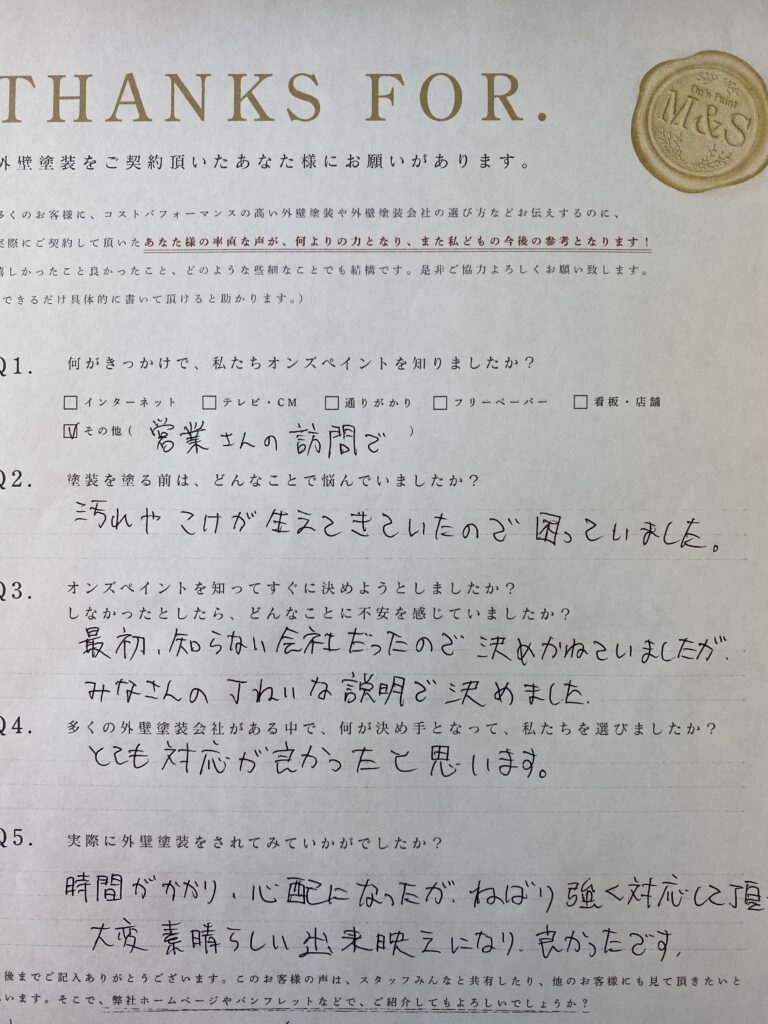 THANKS FOR.
On's Paint
M&S
外壁塗装をご契約頂いたあなた様にお願いがあります。
多くのお客様に、コストパフォーマンスの高い外壁塗装や外壁塗装会社の選び方などお伝えするのに、
実際にご契約して頂いたあなた様の率直な声が、何よりの力となり、また私どもの今後の参考となります！
嬉しかったこと良かったこと、どのような些細なことでも結構です。是非ご協力よろしくお願い致します。
できるだけ具体的に書いて頂けると助かります。）
Q1. 何がきっかけで、私たちオンズペイントを知りましたか？
□インターネット □テレビ・CM □通りがかり □フリーペーパー □看板・店舗
☑その他（ 営業さんの訪問で ）
Q2. 塗装を塗る前は、どんなことで悩んでいましたか？
汚れや こけが 生えてきていたので 困っていました。
Q3. オンズペイントを知ってすぐに決めようとしましたか？
しなかったとしたら、どんなことに不安を感じていましたか？
最初、知らない会社だったので 決めかねていましたが、
みなさんの丁ねいな説明で決めました。
Q4. 多くの外壁塗装会社がある中で、何が決め手となって、私たちを選びましたか？
とても対応が良かったと思います。
Q5. 実際に外壁塗装をされてみていかがでしたか？
時間がかかり、心配になったが、ねばり強く対応して頂
大変 素晴らしい出来映えになり、良かったです。
後までご記入ありがとうございます。このお客様の声は、スタッフみんなと共有したり、他のお客様にも見て頂きたいと
います。そこで、弊社ホームページやパンフレットなどで、ご紹介してもよろしいでしょうか？